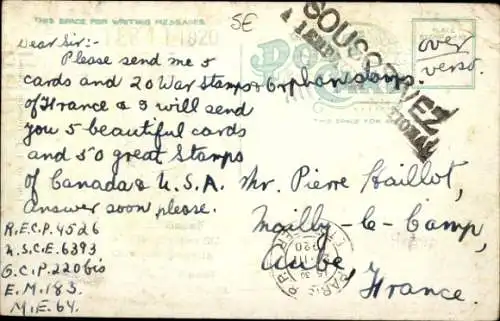 THIS SPACE FOR WRITING MESSAGES.
5E
SOUSCRIVEZ
PLACE
over
verso.
Dear Sir:-
Please send me 5
cards and 20 War Stamps & 6 orphan stamps.
of France & I will send
you 5 beautiful cards
and 50 great Stamps
of Canada & U.S.A.
Answer soon please.
THIS SPACE FOR
Mr. Pierre Haillot,
Mailly-le-Camp,
Aube,
France.
PARIS
R.E.C.P. 4526
U.S.C.E. 6393
G.C.P. 220 bis
E.M. 183.
M.E. 64.